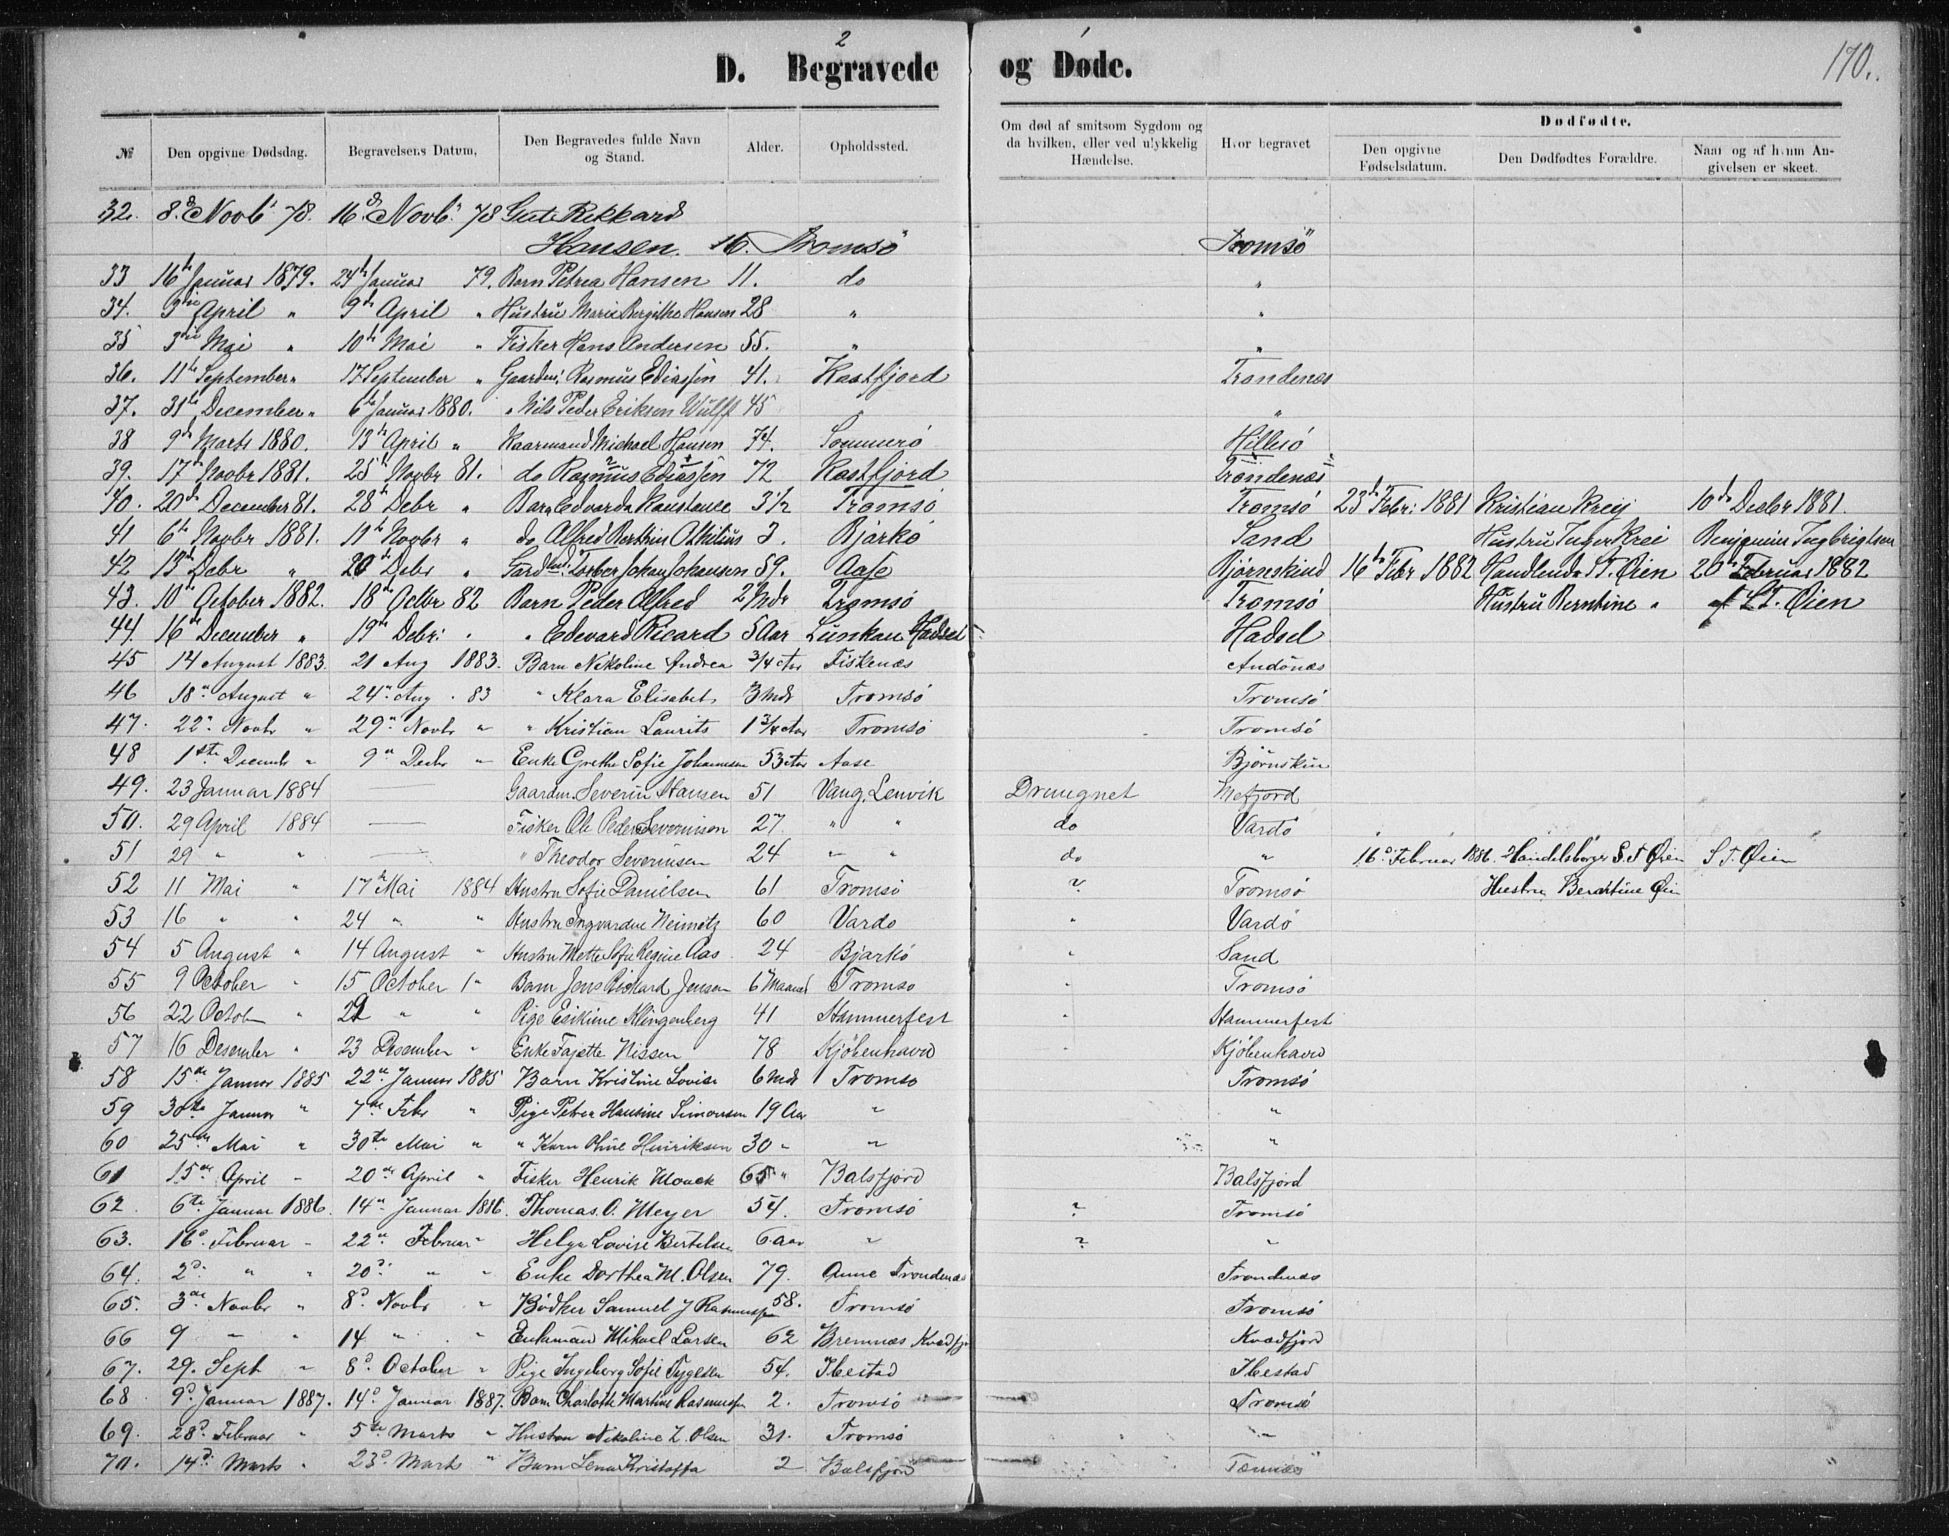 2
D. Begravede og Døde.
170.
№ Den opgivne Dødsdag. Begravelsens Datum, Den Begravedes fulde Navn og Stand. Alder. Opholdssted. Om død af smitsom Sygdom og da hvilken, eller ved ulykkelig Hændelse. Hvor begravet Dødfødte. Den opgivne Fødselsdatum. Den Dødfødtes Forældre. Naar og af hvem Angivelsen er skeet.
32. 8.d Novb. 78. 16d Novb. 78 Gut Rikkard
Hansen. 16. Tromsö Tromsö
33 16de Januar 1879. 24de Januar 79. Barn Petrea Hansen 11. do "
34. 3die April " 9de April " Hustru Marie Bergithe Hansen 28 " "
35 3die Mai " 10de Mai " Fisker Hans Andersen 55. " "
36. 11te September " 17 September " Gaardm: Rasmus Ediassen 41. Kastfjord Trondenæs
37. 31te December " 6te Januar 1880. " Nils Peder Eriksen Wulff 45 " "
38 9de Marts 1880. 13de April " Kaarmand Michael Hansen 74. Sommerö Hillesö
39. 17de Novbr 1881. 25de Novbr 81. do Rasmus Ediassen 72 Kastfjord Trondenæs
40. 20de December 81. 28de Debr " Barn Edvarda Konstance 3 1/2 Tromsö Tromsö 23de Febr: 1881 Kristian Kreij 10de Decbr 1881.
41 6te Novbr 1881. 11te Novbr " do Alfred Berthin Othilius 3. Bjarkö Sand Hustru Inger Krei Benjamin Ingbrigtsen
42 13de Debr " 20 Debr " Gårdmd: Torber Johan Johansen 59. Aase Bjørnskind 16de Febr 1882 Handlende S. T. Øien 20de Februar 1882
43. 10de October 1882. 18de Octbr 82 Barn Peder Alfred 2 Mdr Tromsö Tromsö Hustru Berntine " af S. T. Øien
44. 16de December " 19de Debr: " " Edevard Ricard 5 Aar Lunkan Hadsel Hadsel
45 14 August 1883. 21 Aug 1883. Barn Nikoline Andrea 3/4 Aar Fiskenæs Andönæs
46 18de August " 24de Aug. 83 " Klara Elisabet 3 Mdr Tromsö Tromsö
47. 22de Novbr " 29de Novbr " " Kristian Laurits 1 3/4 Aar Tromsö Tromsö
48 1ste Decembr " 9de Decbr " Enke Grethe Sofie Johannsen 53 Aar Aase Bjørnskin
49. 23 Januar 1884 — Gaardm. Severin Hansen 51 Vang, Lenvik Druugnet Mefjord
50. 29 April 1884 — Fisker Ole Peder Severinsen 27. " " do Vardö
51 29 " " — " Theodor Severinsen 24 " " do " 16d Februar 1886. Handelsborger S. T. Øien S T. Øien
52 11 Mai " 17de Mai 1884 Hustru Sofie Danielsen 61 Tromsö ? Tromsö Hustru Berntine Øien
53 16 " " 24 " " Hustru Ingvardine 60 Vardö " Vardö
54 5 August " 14 August " Hustru Mette Sofie Regine Aas 24 Bjarkö " Sand
55 9 October " 15 October " Barn Jens Rikard Jensen 6 Maaned Tromsö " Tromsö
56 22 October " 29 " " Pige Klingenberg 41 Hammerfest " Hammerfest
57 16 Desember " 23 Desember " Enke Fajette Nissen 78 Kjöbenhavn " Kjöbenhavn
58 15de Januar 1885 22de Januar 1885 Barn Kristine Lovise 6 Mdr Tromsö Tromsö
59 30te Januar " 7de Febr " Pige Petrea Hansine Simonsen 19 Aar " "
60 25de Mai " 30te Mai " " Karn Oline Henriksen 30 " " "
61 15de April " 20de April " Fisker Henrik Monck 65 " Balsfjord Balsfjord
62. 6te Januar 1886. 14de Januar 1886. Thomas. O. Meyer 54. Tromsö ? Tromsö
63. 16d. Februar " 22de Februar " Helga Lovise Bertelsen 6 aar " ? "
64. 2d. " " 20d. " " Enke Dorthea M. Olsen 79. Anne Trondenæs Trondenæs
65. 3de Novbr " 8d. Novbr " Bødker Samuel J Rasmussen 58. Tromsö Tromsö
66 9 " " 14 " " Enkmand Mikael Larsen 62 Bremnæs Kvædfj Kvædfjord
67. 29. Sept " 8d. October " Pige Ingeborg Sofie 54. Ibestad Ibestad
68 9d. Januar 1887. 14d. Januar 1887. Barn Charlotte Martine Rasmussen 2. Tromsö Tromsö
69. 28d. Februar " 5te Marts " Hustru Nikoline L. Olsen 31. Tromsö "
70. 14d. Marts " 23d. Marts " Barn Lena Kristoffa 2 Balsfjord